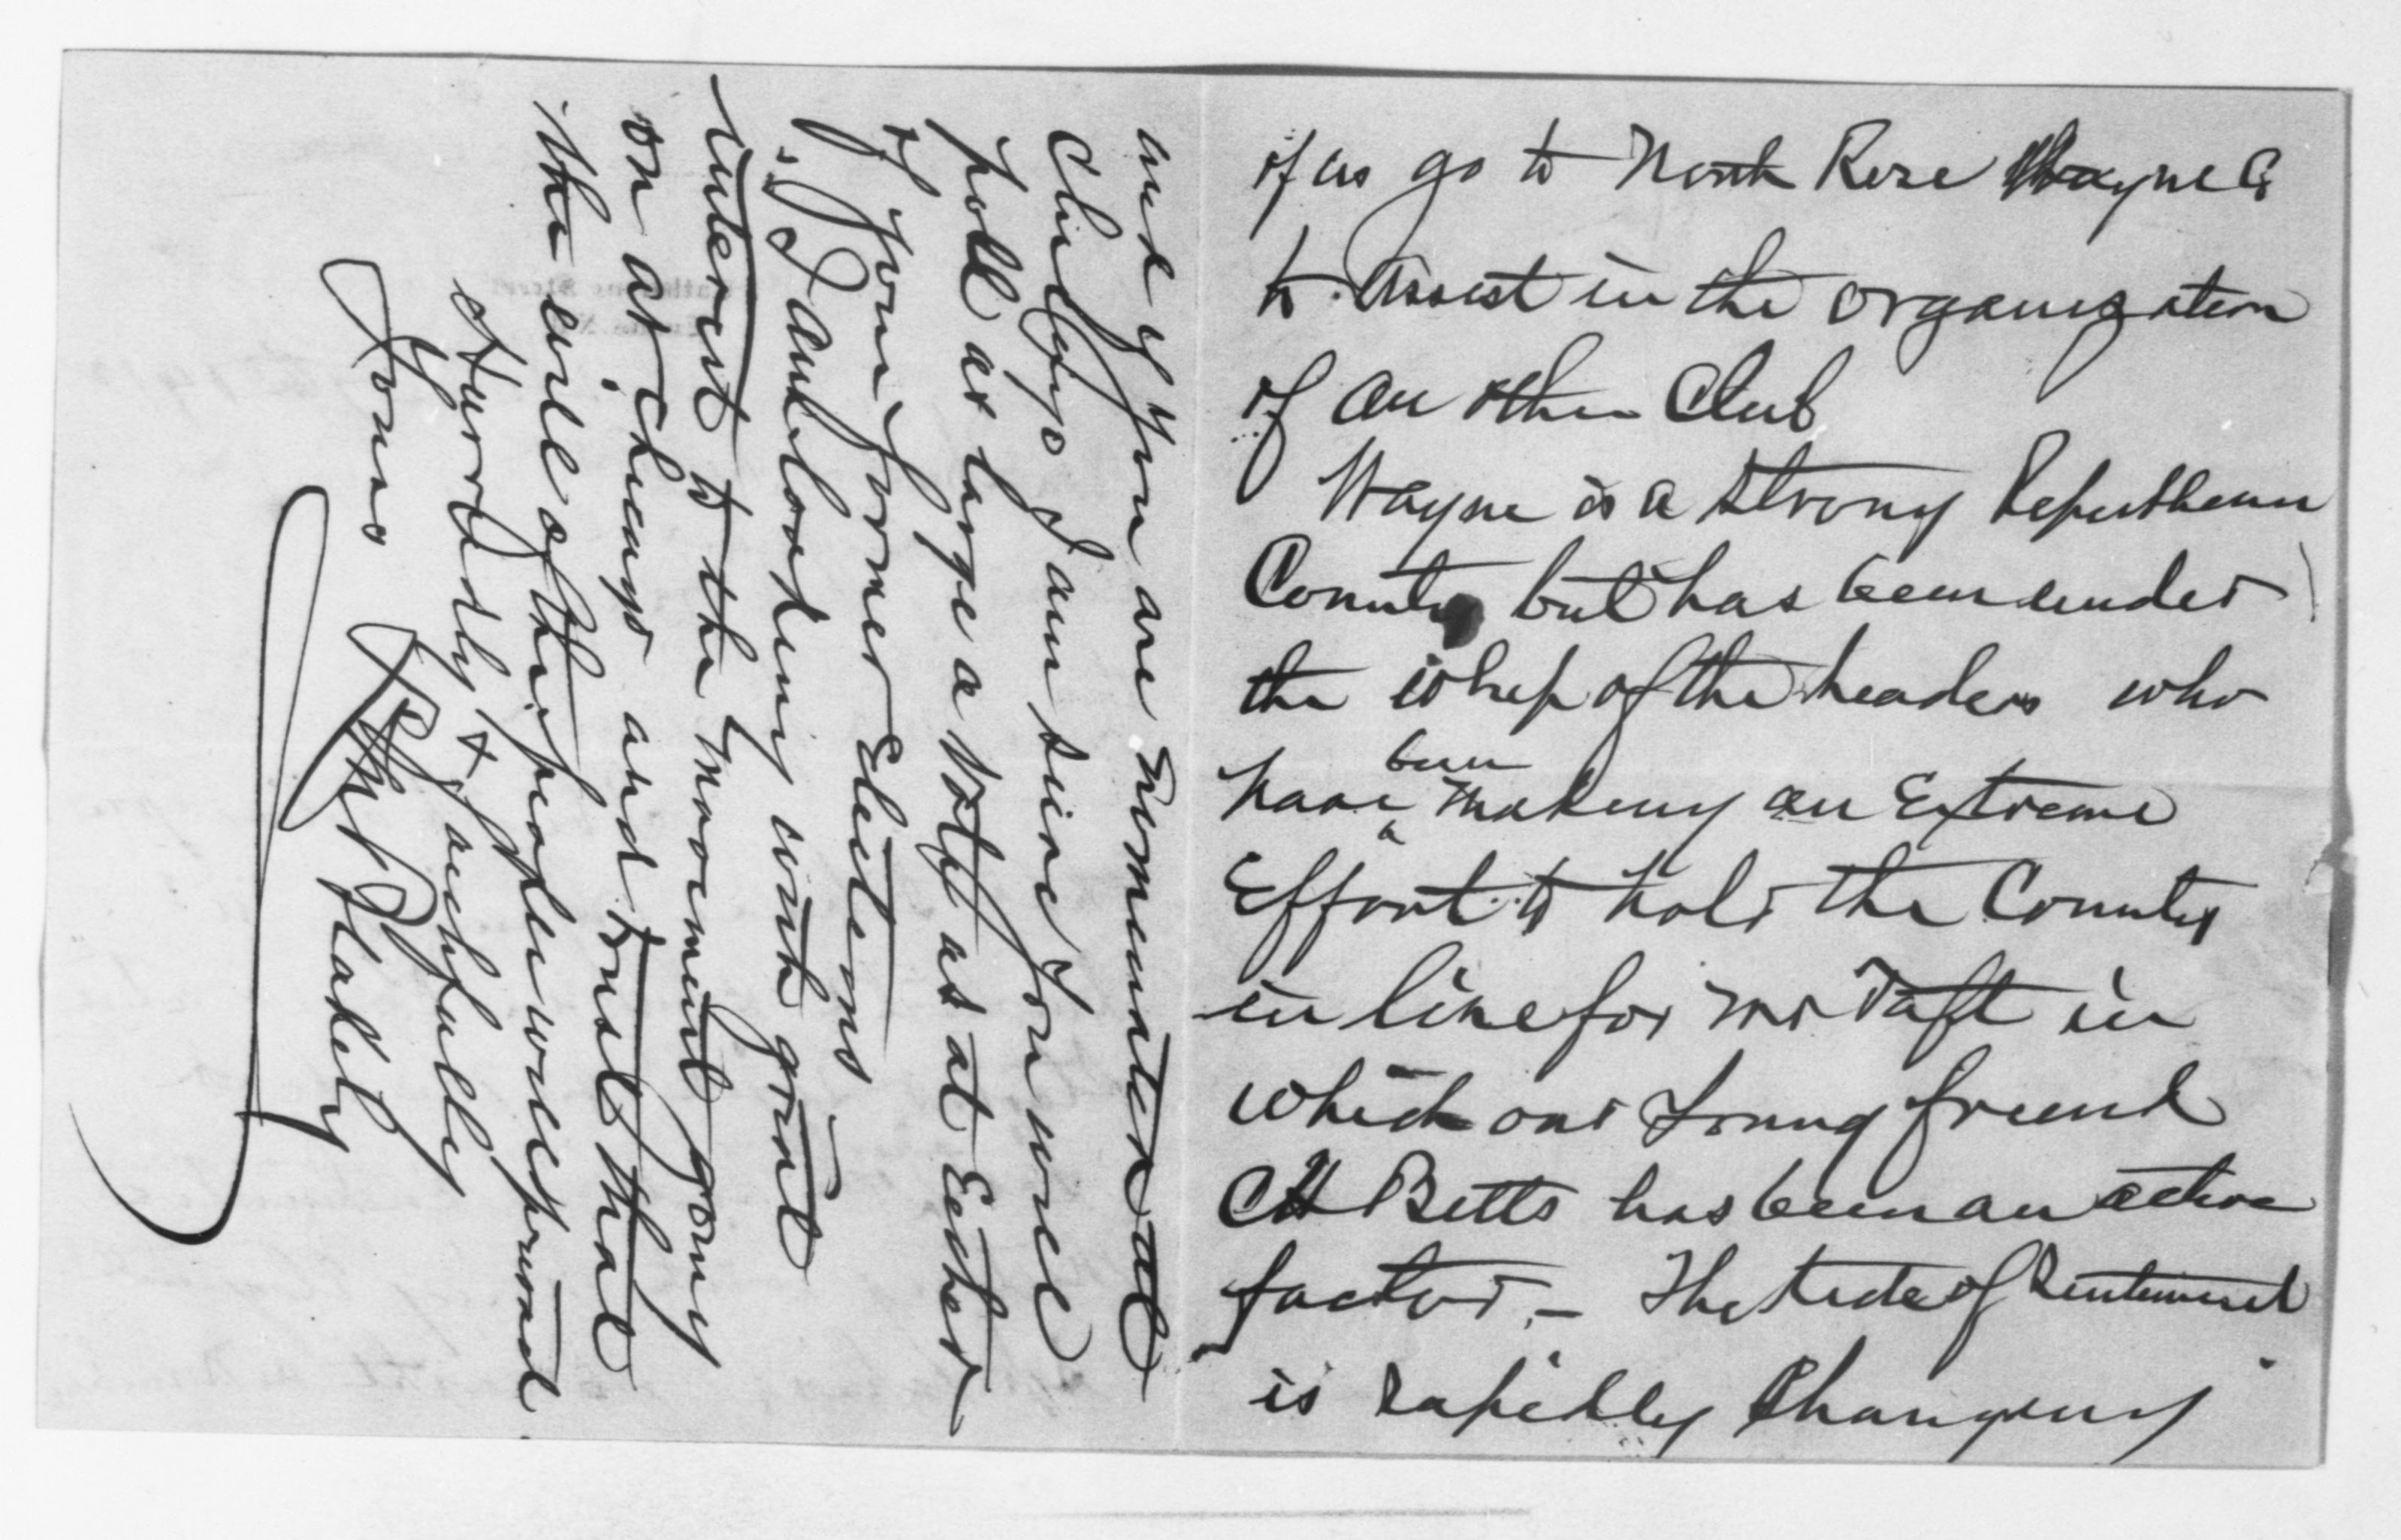 of us go to North Rose Wayne Co
to assist in the organization
of an other Club
Wayne is a strong Republican
County but has been under
the whip of the leaders who
have been making an Extreme
Effort to hold the County
in line for Mr Taft in
which our Young friend
CH Betts has been an active
factor. – The tide of Sentiment
is rapidly Changing
and if you are nominated at
Chicago I am sure you will
poll as large a vote as at Either
of your former Elections
I am looking with great
interest to the movement going
on at Chicago and trust that
the will of the people will prevail
Hurriedly & faithfully
Yours
Blakely